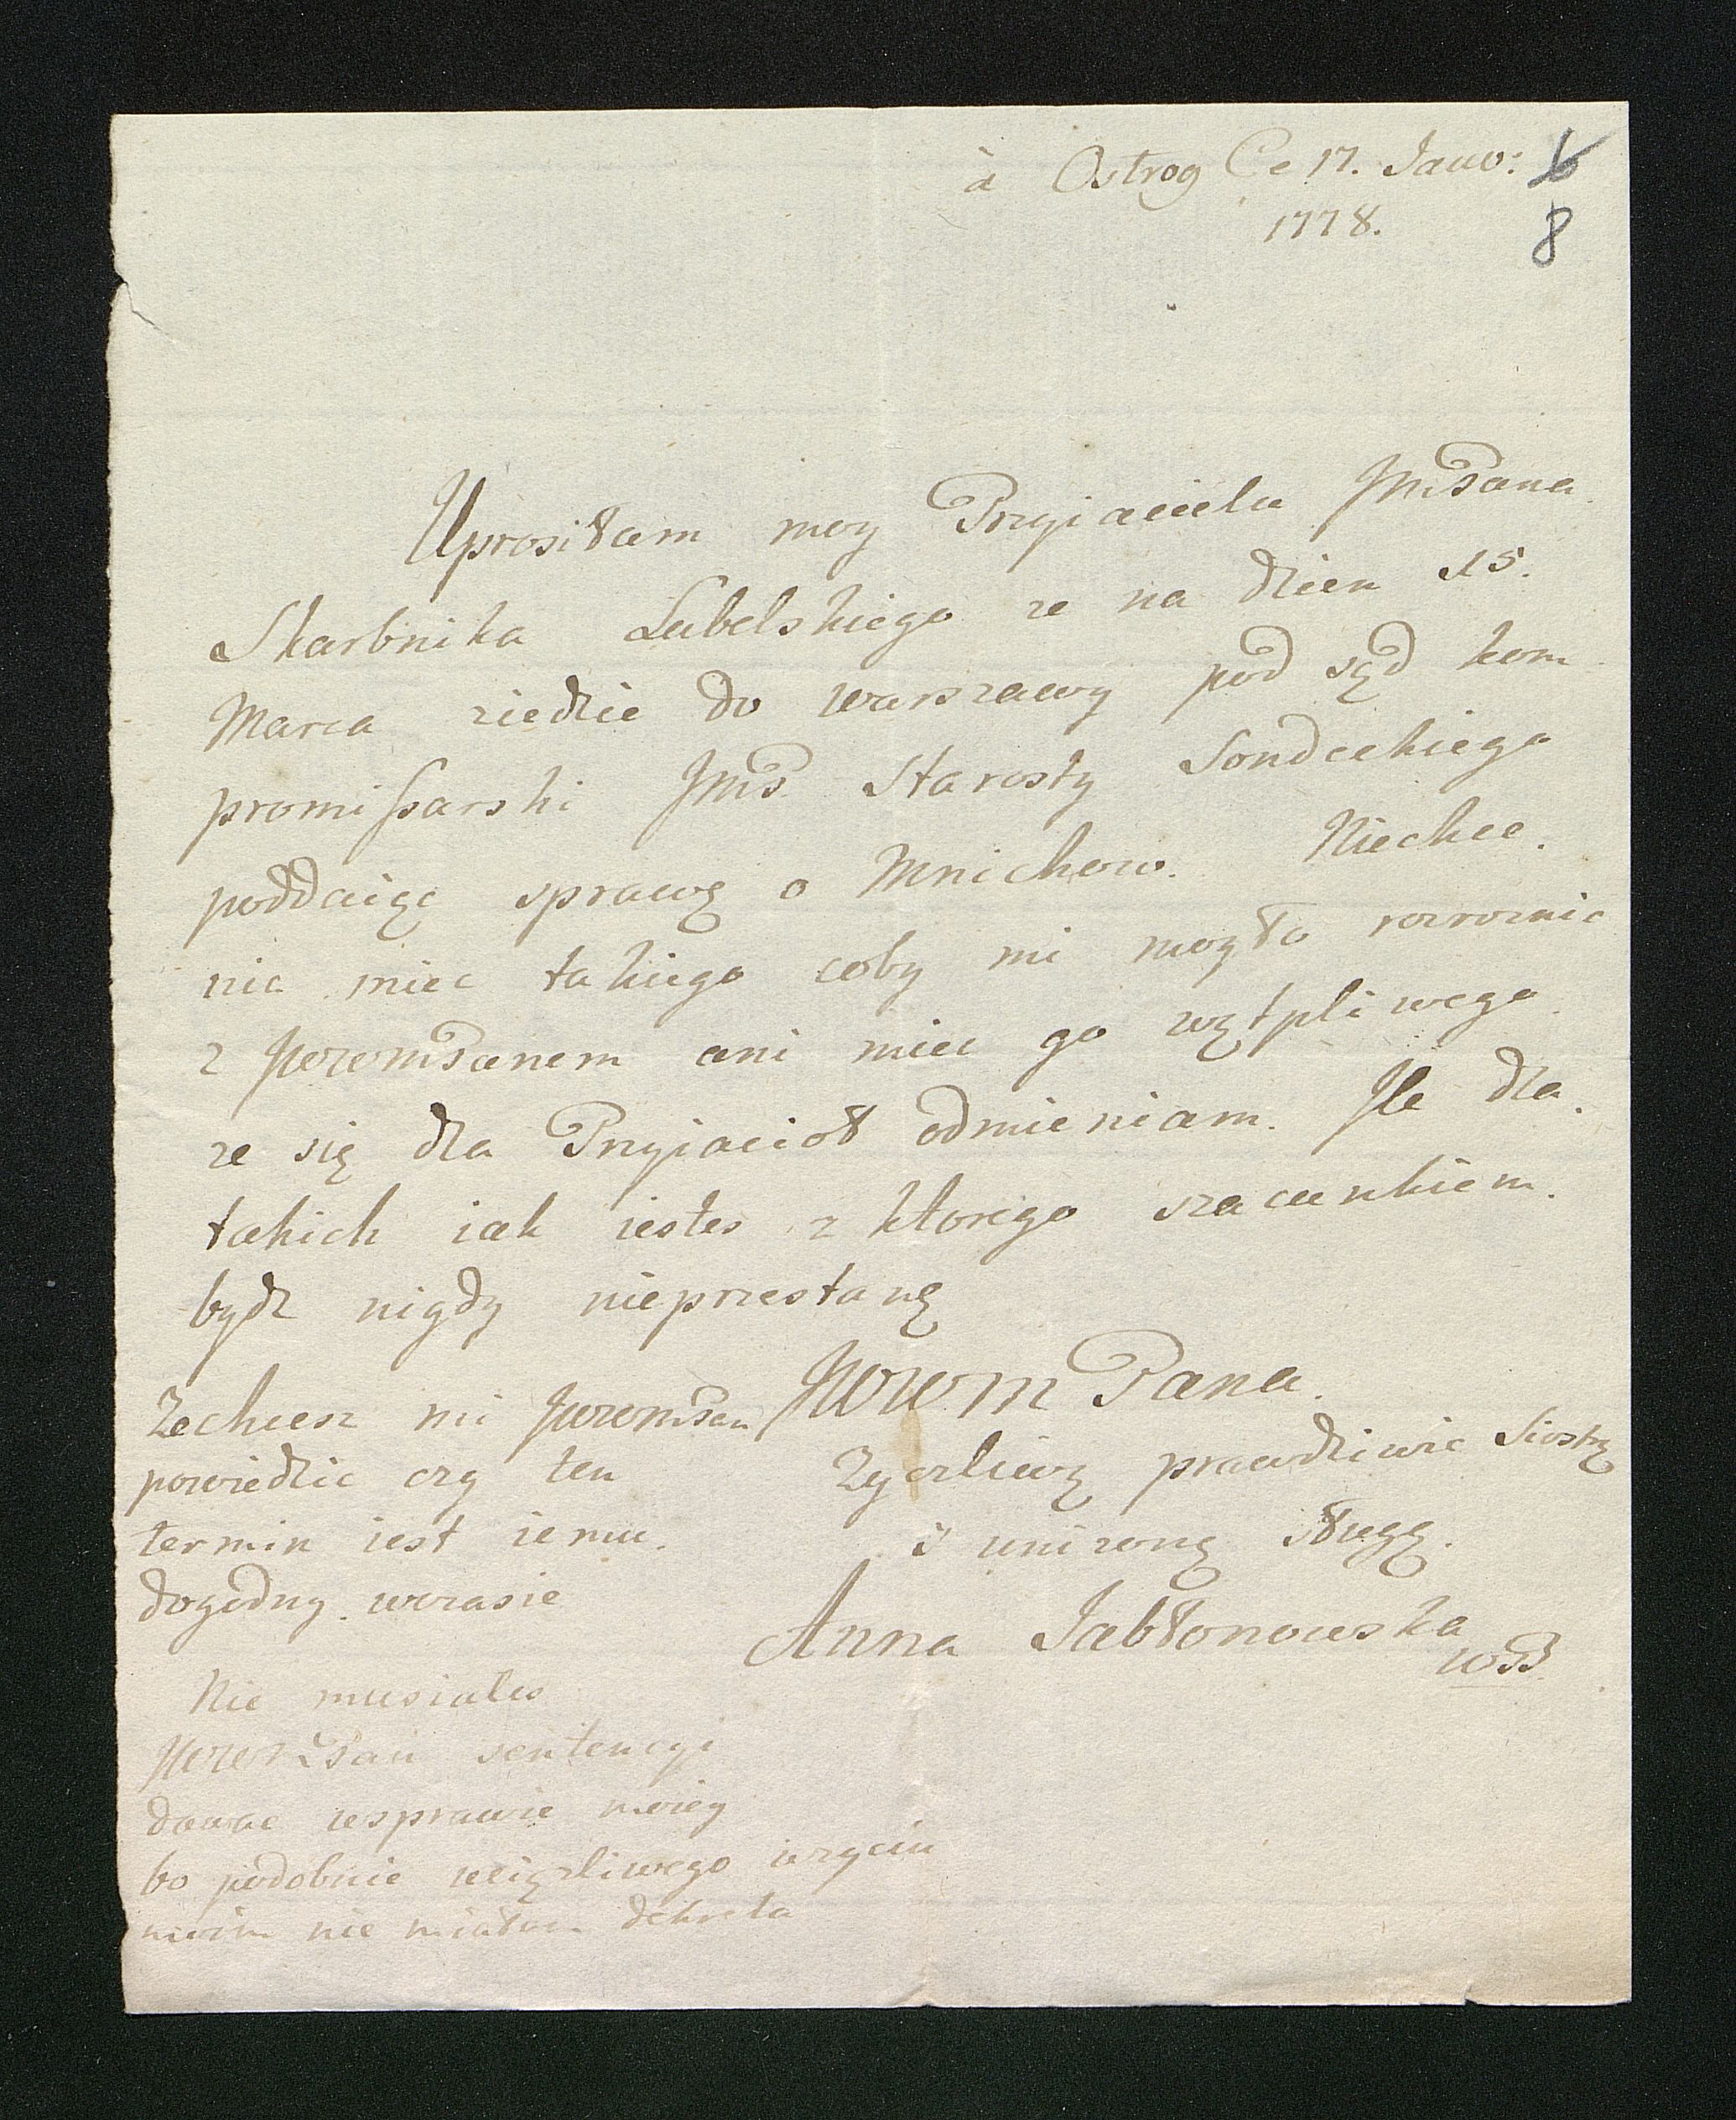 à Ostrog Ce 17. Janv: 6
1778. 8
Uprosiłam moy Przyiacielu JmPana
Skarbnika Lubelskiego ze na dzien 15.
Marca ziedzie do warszawy pod sąd kom
promissarski JmP Starosty Sondeckiego
poddaiąc sprawę o Mnichow. Niechce
nic miec takiego coby mi mogło rozroznic
z JWWmPanem ani miec go wątpliwego
ze się dla Przyiacioł odmieniam. Ile dla
takich iak iestes z ktorego szacunkiem
bydz nigdy nieprzestanę
JWWmPana
Zyczliwą prawdziwie Siostrą
i unizoną sługą.
Anna Jabłonowska
WB
Zechcesz mi JWWmPan
powiedzic czy ten
termin iest iemu
dogodny wczasie
Nie musiales
JWWmPan sentencyi
dawac wsprawie moiey
bo podobnie uciązliwego wzyciu
moim nie miałam dekretu